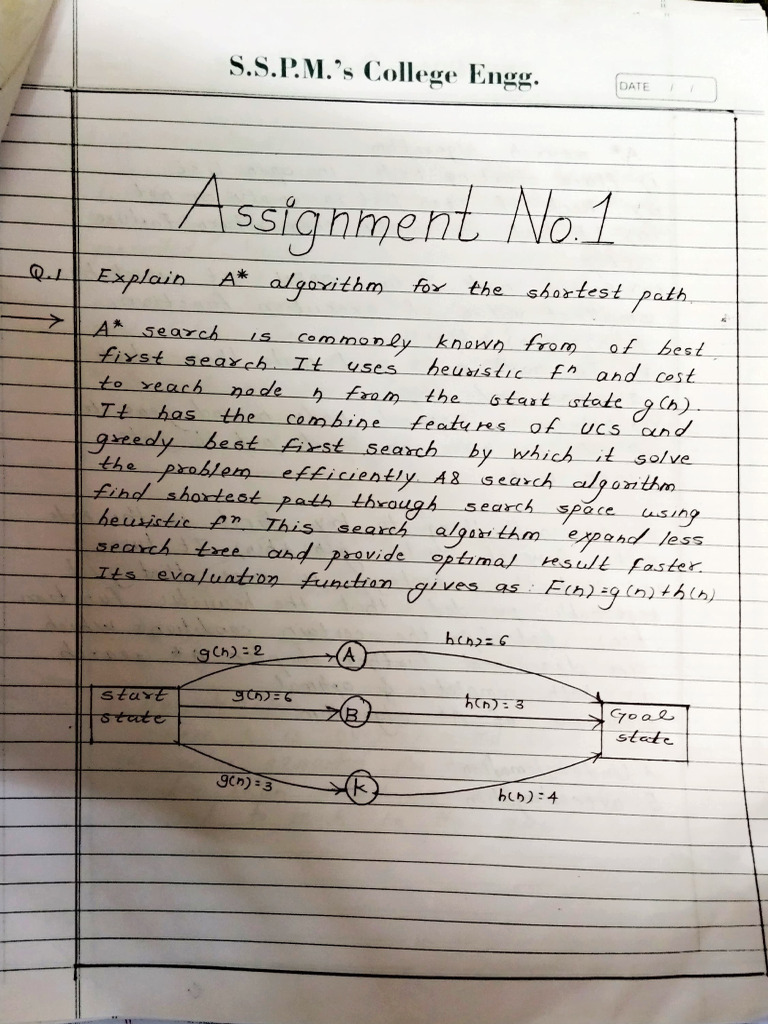 S.S.P.M.'s College Engg.
DATE / /
Assignment No.1
Q.1 Explain A* algorithm for the shortest path.
→ A* search is commonly known from of best
first search. It uses heuristic fⁿ and cost
to reach node n from the start state g(n).
It has the combine features of UCS and
greedy best first search by which it solve
the problem efficiently A8 search algorithm
find shortest path through search space using
heuristic fⁿ. This search algorithm expand less
search tree and provide optimal result faster.
Its evaluation function gives as : F(n)=g(n)+h(n)
g(n)=2 A h(n)=6
start state
g(n)=6 B h(n)=3
Goal state
g(n)=3 K h(n)=4